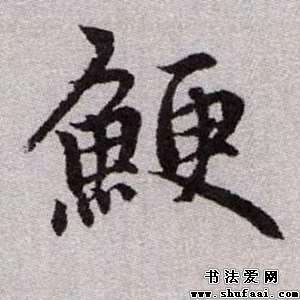 鯁
书法爱网
www.shufaai.com